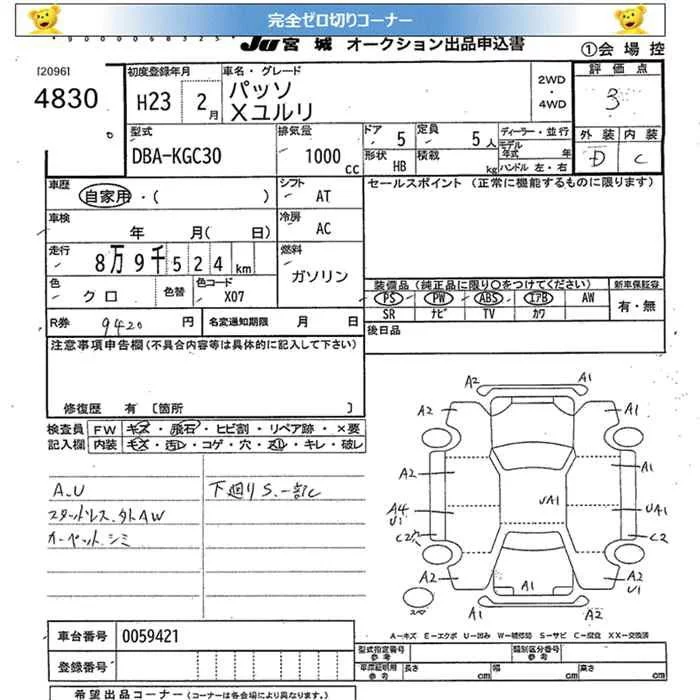 完全ゼロ切りコーナー
JU 宮城 オークション出品申込書
①会場控
[2096]
4830
初度登録年月
H23 2月
車名・グレード
パッソ
Xユルリ
2WD
・
4WD
評価点
3
外装 内装
D C
型式
DBA-KGC30
排気量
1000 cc
ドア 5
定員 5人
形状 HB
積載 kg
ディーラー・並行
モデル年式 年
ハンドル 左・右
車歴
自家用・( )
シフト
AT
セールスポイント (正常に機能するものに限ります)
車検
年 月( 日)
冷房
AC
走行
8万9千524km
燃料
ガソリン
色
クロ
色替
色コード
X07
装備品 (純正品に限り○をつけてください)
新車保証書
PS PW ABS エアB AW
SR ナビ TV カワ
有・無
R券 9420円
名変通知期限 月 日
後日品
注意事項申告欄(不具合内容等は具体的に記入して下さい)
修復歴 有 [箇所 ]
検査員 FW キズ・飛石・ヒビ割・リペア跡・×要
記入欄 内装 キズ・汚レ・コゲ・穴・スレ・キレ・破レ
A.U
スタッドレス.外AW
カーペットシミ
下廻りS.一部C
A2 A1
A2 A1
A2 A1
UA1
A4 U1
UA1
C2
C2
A2
A1
A2 U1
A1 A2
スペア
A-キズ E-エクボ U-凹み W-補修跡 S-サビ C-腐食 XX-交換済
車台番号 0059421
登録番号
型式指定番号 参考
類別区分番号 参考
車庫証明用 参考 長さ cm 幅 cm 高さ cm
希望出品コーナー (コーナーは各会場により異なります。)